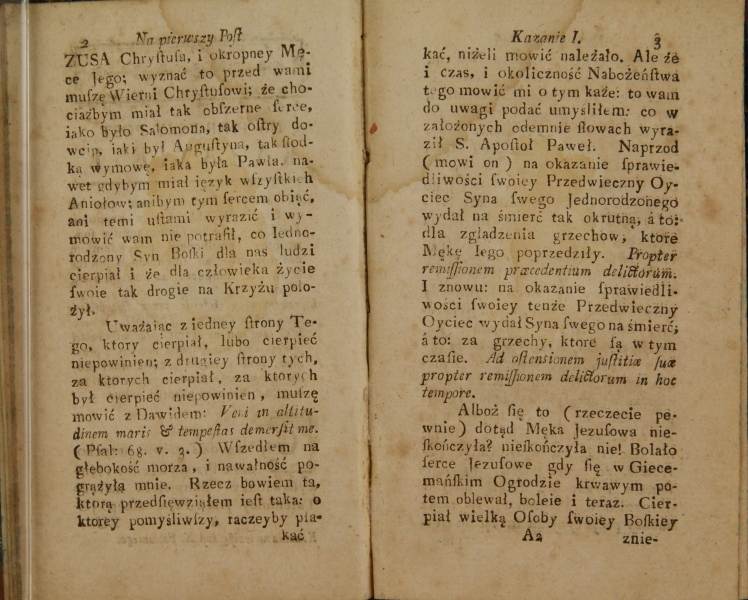 2 Na pierwszy Poſt
ZUSA Chryſtuſa, i okropney Mę-
ce Jego; wyznać to przed wami
muſzę Wierni Chryſtuſowi; że cho-
ciażbym miał tak obſzerne ſerce,
iako było Salomona, tak oſtry do-
wcip, iaki był Auguſtyna, tak ſłod-
ką wymowę, iaka była Pawła, na-
wet gdybym miał ięzyk wſzyſtkich
Aniołow; anibym tym ſercem obiąć,
ani temi uſtami wyrazić i wy-
mowić wam nie potrafił, co Iedno-
rodzony Syn Boſki dla nas ludzi
cierpiał i że dla człowieka życie
ſwoie tak drogie na Krzyżu poło-
żył.
Uważaiąc z iedney ſtrony Te-
go, ktory cierpiał, lubo cierpieć
niepowinien; z drugiey ſtrony tych,
za ktorych cierpiał, za ktorych
był cierpieć niepowinien, muſzę
mowić z Dawidem: Veni in altitu-
dinem maris & tempeſtas demerſit me.
(Pſal: 68. v. 3.) Wſzedłem na
głebokość morza, i nawałność po-
grążyła mnie. Rzecz bowiem ta,
ktorą przedſięwziąłem ieſt taka: o
ktorey pomyśliwſzy, raczeyby pła-
kać
Kazanie I. 3
kać, niżeli mowić należało. Ale że
i czas, i okoliczność Nabożeńſtwa
tego mowić mi o tym każe: to wam
do uwagi podać umyśliłem: co w
założonych odemnie ſłowach wyra-
ził S. Apoſtoł Paweł. Naprzod
(mowi on) na okazanie ſprawie-
dliwości ſwoiey Przedwieczny Oy-
ciec Syna ſwego Jednorodzonego
wydał na śmierć tak okrutną, á to:
dla zgladzenia grzechow, ktore
Mękę Iego poprzedziły. Propter
remiſſionem præcedentium delictorum.
I znowu: na okazanie ſprawiedli-
wości ſwoiey tenże Przedwieczny
Oyciec wydał Syna ſwego na śmierć,
á to: za grzechy, ktore ſą w tym
czaſie. Ad oſtenſionem juſtitiæ ſuæ
propter remiſſionem delictorum in hoc
tempore.
Alboż ſię to (rzeczecie pe-
wnie) dotąd Męka Jezuſowa nie-
ſkończyła? nieſkończyła nie! Bolało
ſerce Jezuſowe gdy ſię w Giece-
mańſkim Ogrodzie krwawym po-
tem oblewał, boleie i teraz. Cier-
piał wielką Oſoby ſwoiey Boſkiey
Aa znie-